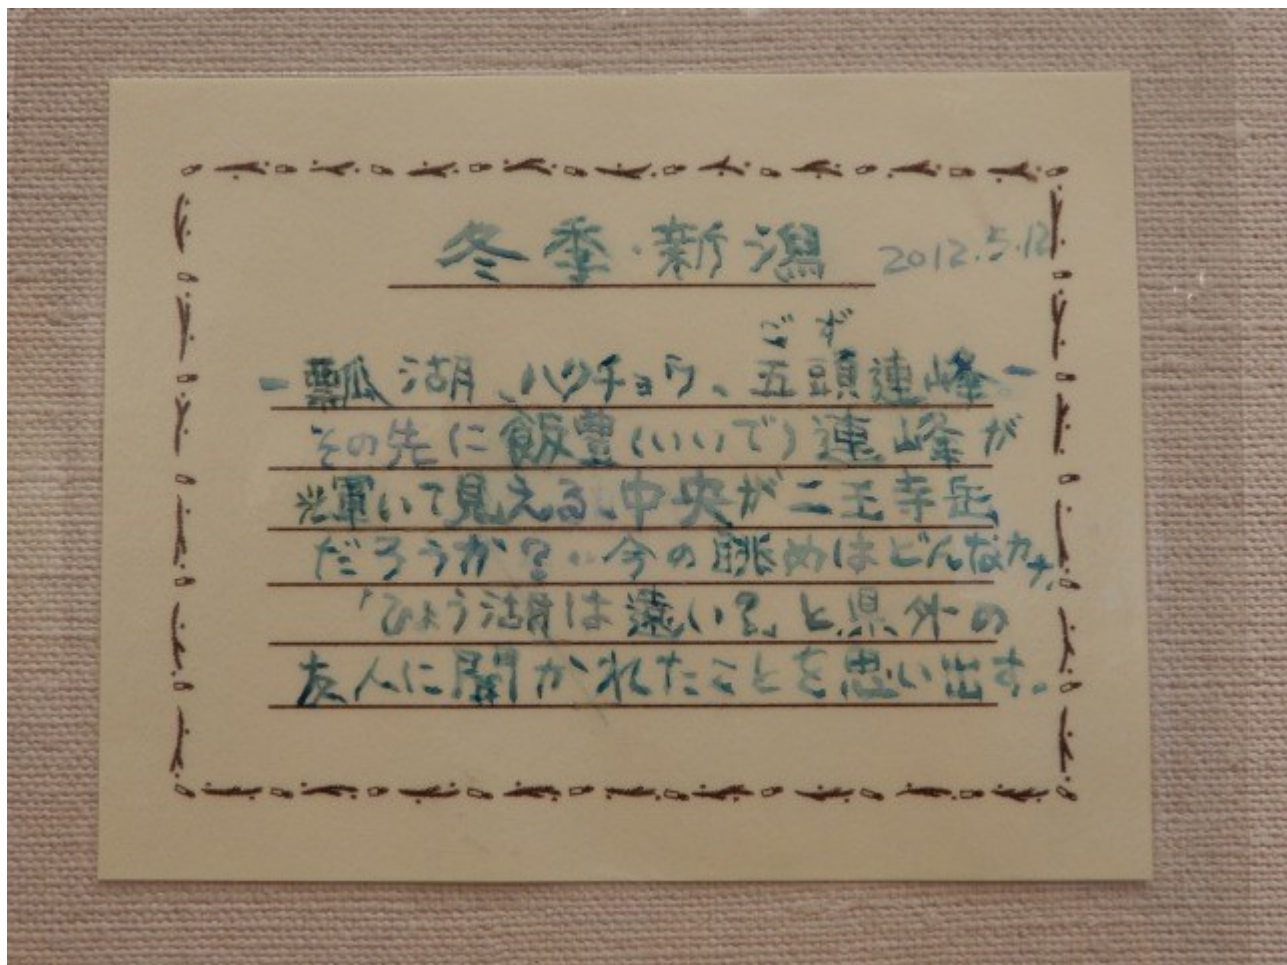 冬季・新潟 2012.5.12
ごず
-瓢湖、ハクチョウ、五頭連峰-
その先に飯豊(いいで)連峰が
輝いて見える、中央が二王寺岳
だろうか?‥今の眺めはどんなカナ、
「ひょう湖は遠い?」と、県外の
友人に聞かれたことを思い出す。